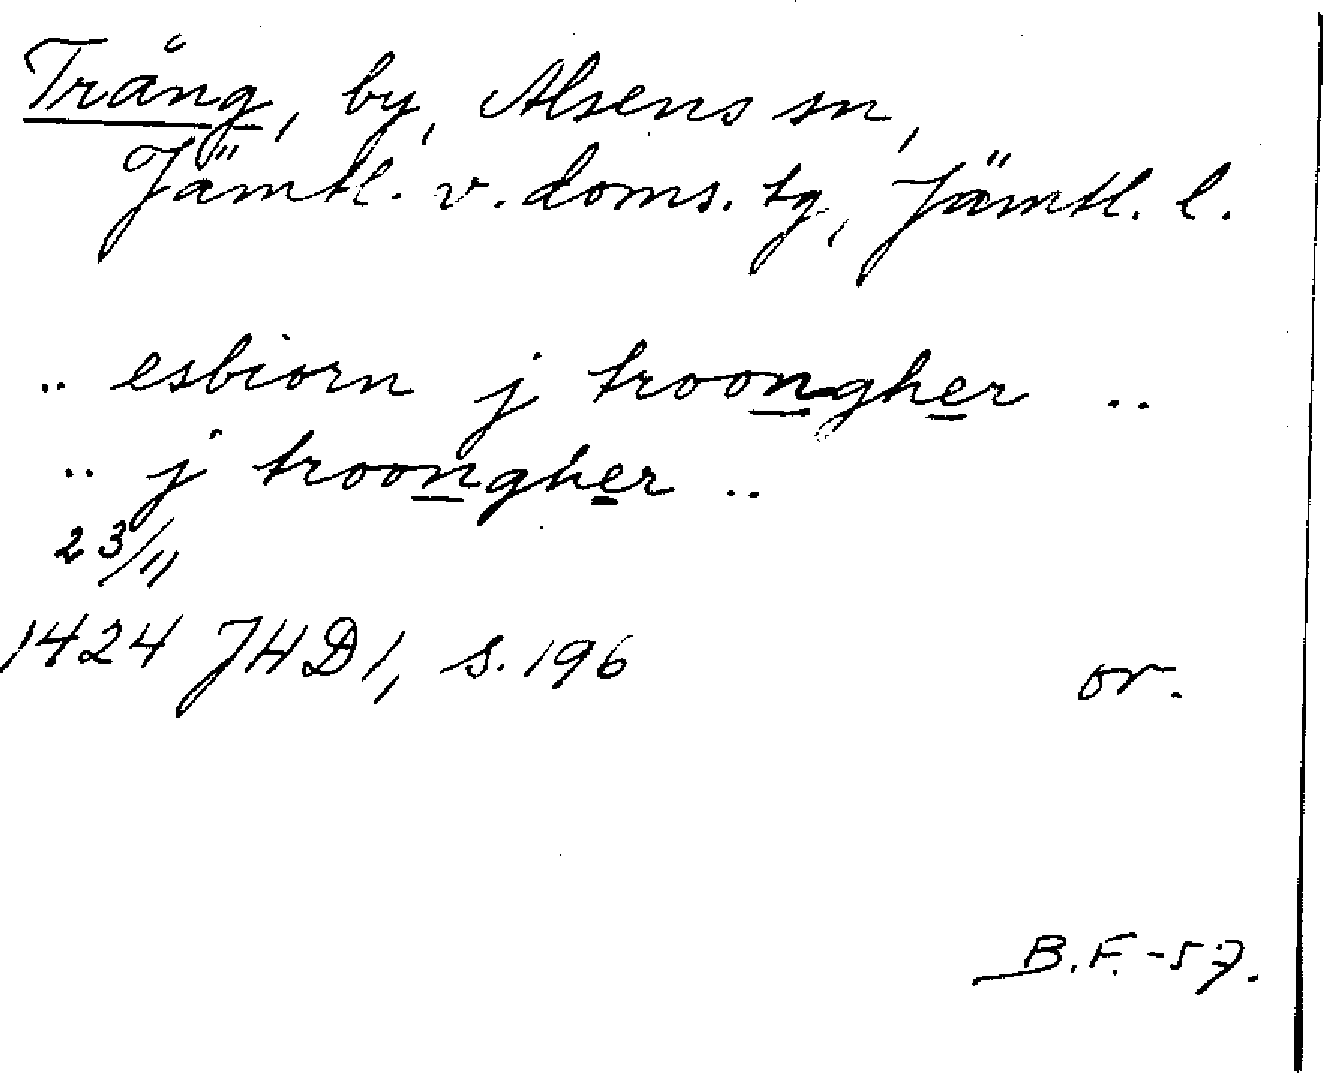 Trång, by, Alsens sn,
Jämtl. v. doms. tg, Jämtl. l.
.. esbiorn j troongher ..
.. j troongher ..
23/11
1424 JHD1, s. 196 or.
B.F. -57.